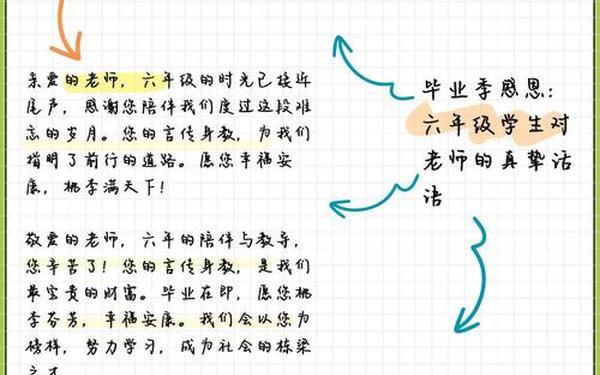 亲爱的老师，六年级的时光已接近
尾声，感谢您陪伴我们度过这段难
忘的岁月。您的言传身教，为我们
指明了前行的道路。愿您幸福安
康，桃李满天下！
敬爱的老师，六年的陪伴与教导，
您辛苦了！您的言传身教，是我们
最宝贵的财富。毕业在即，愿您桃
李芬芳，幸福安康。我们会以您为
榜样，努力学习，成为社会的栋梁
之才
毕业季感恩：
六年级学生对
老师的真挚话
语